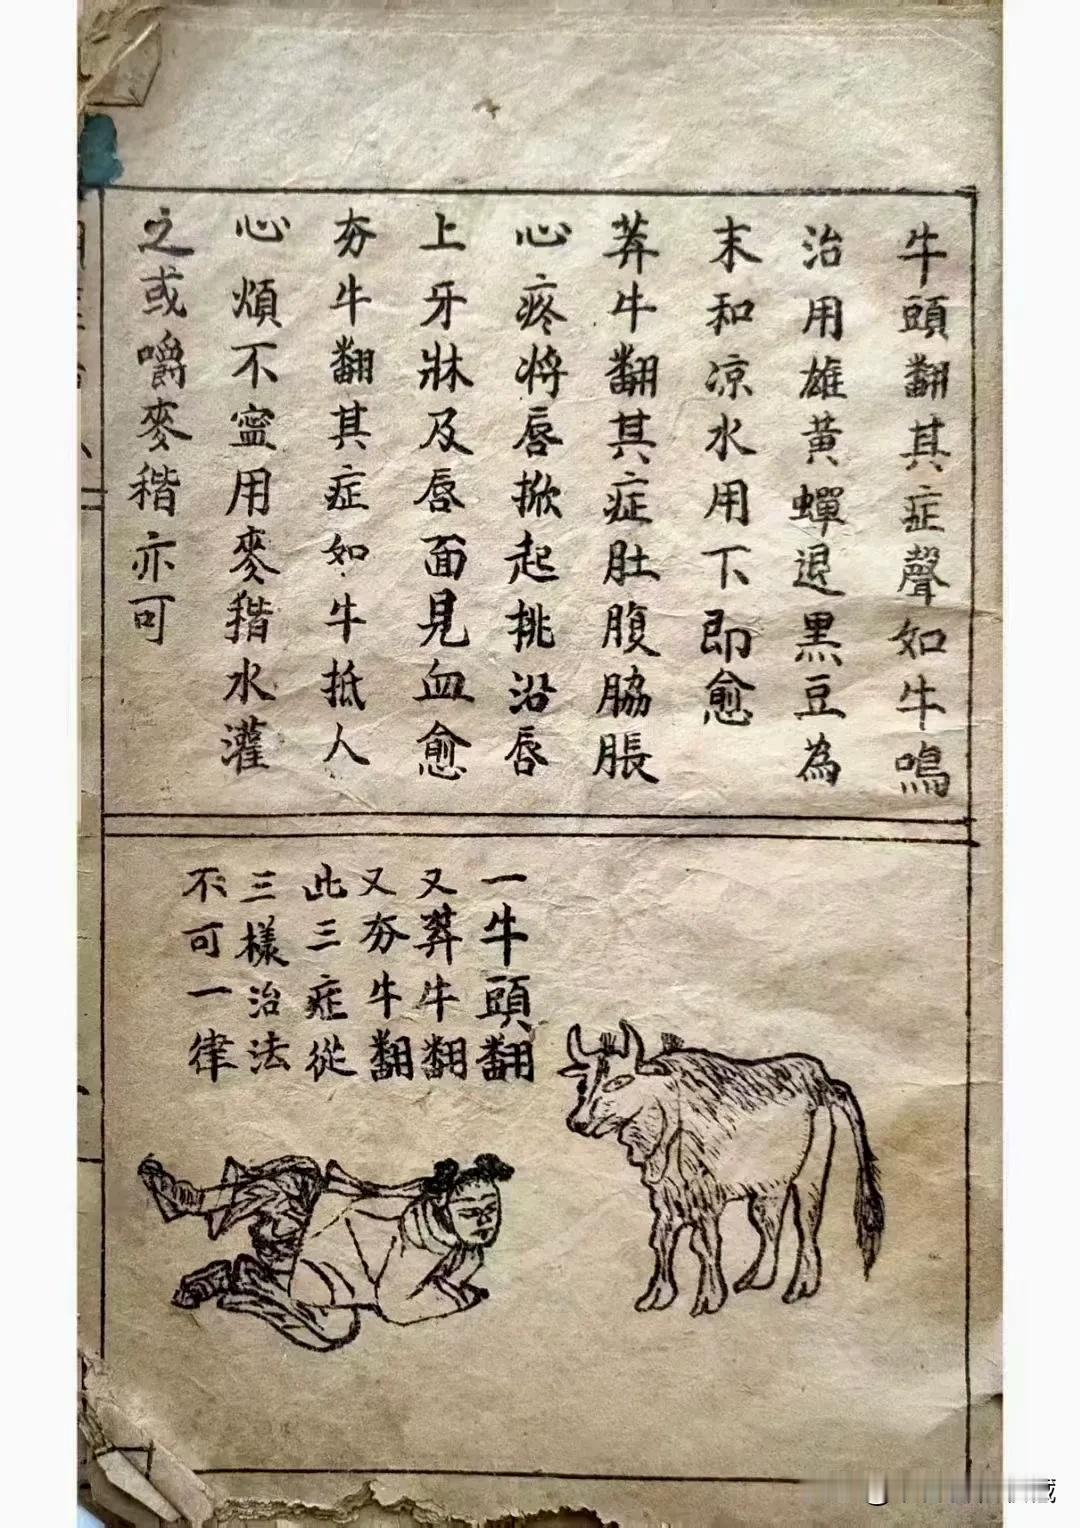 牛頭翻其症聲如牛鳴
治用雄黃蟬退黑豆為
末和凉水用下即愈
莽牛翻其症肚腹脇脹
心疼將唇掀起挑沿唇
上牙牀及唇面見血愈
夯牛翻其症如牛抵人
心煩不寍用麥稭水灌
之或嚼麥稭亦可
一牛頭翻
又莽牛翻
又夯牛翻
此三症從
三樣治法
不可一律
藏